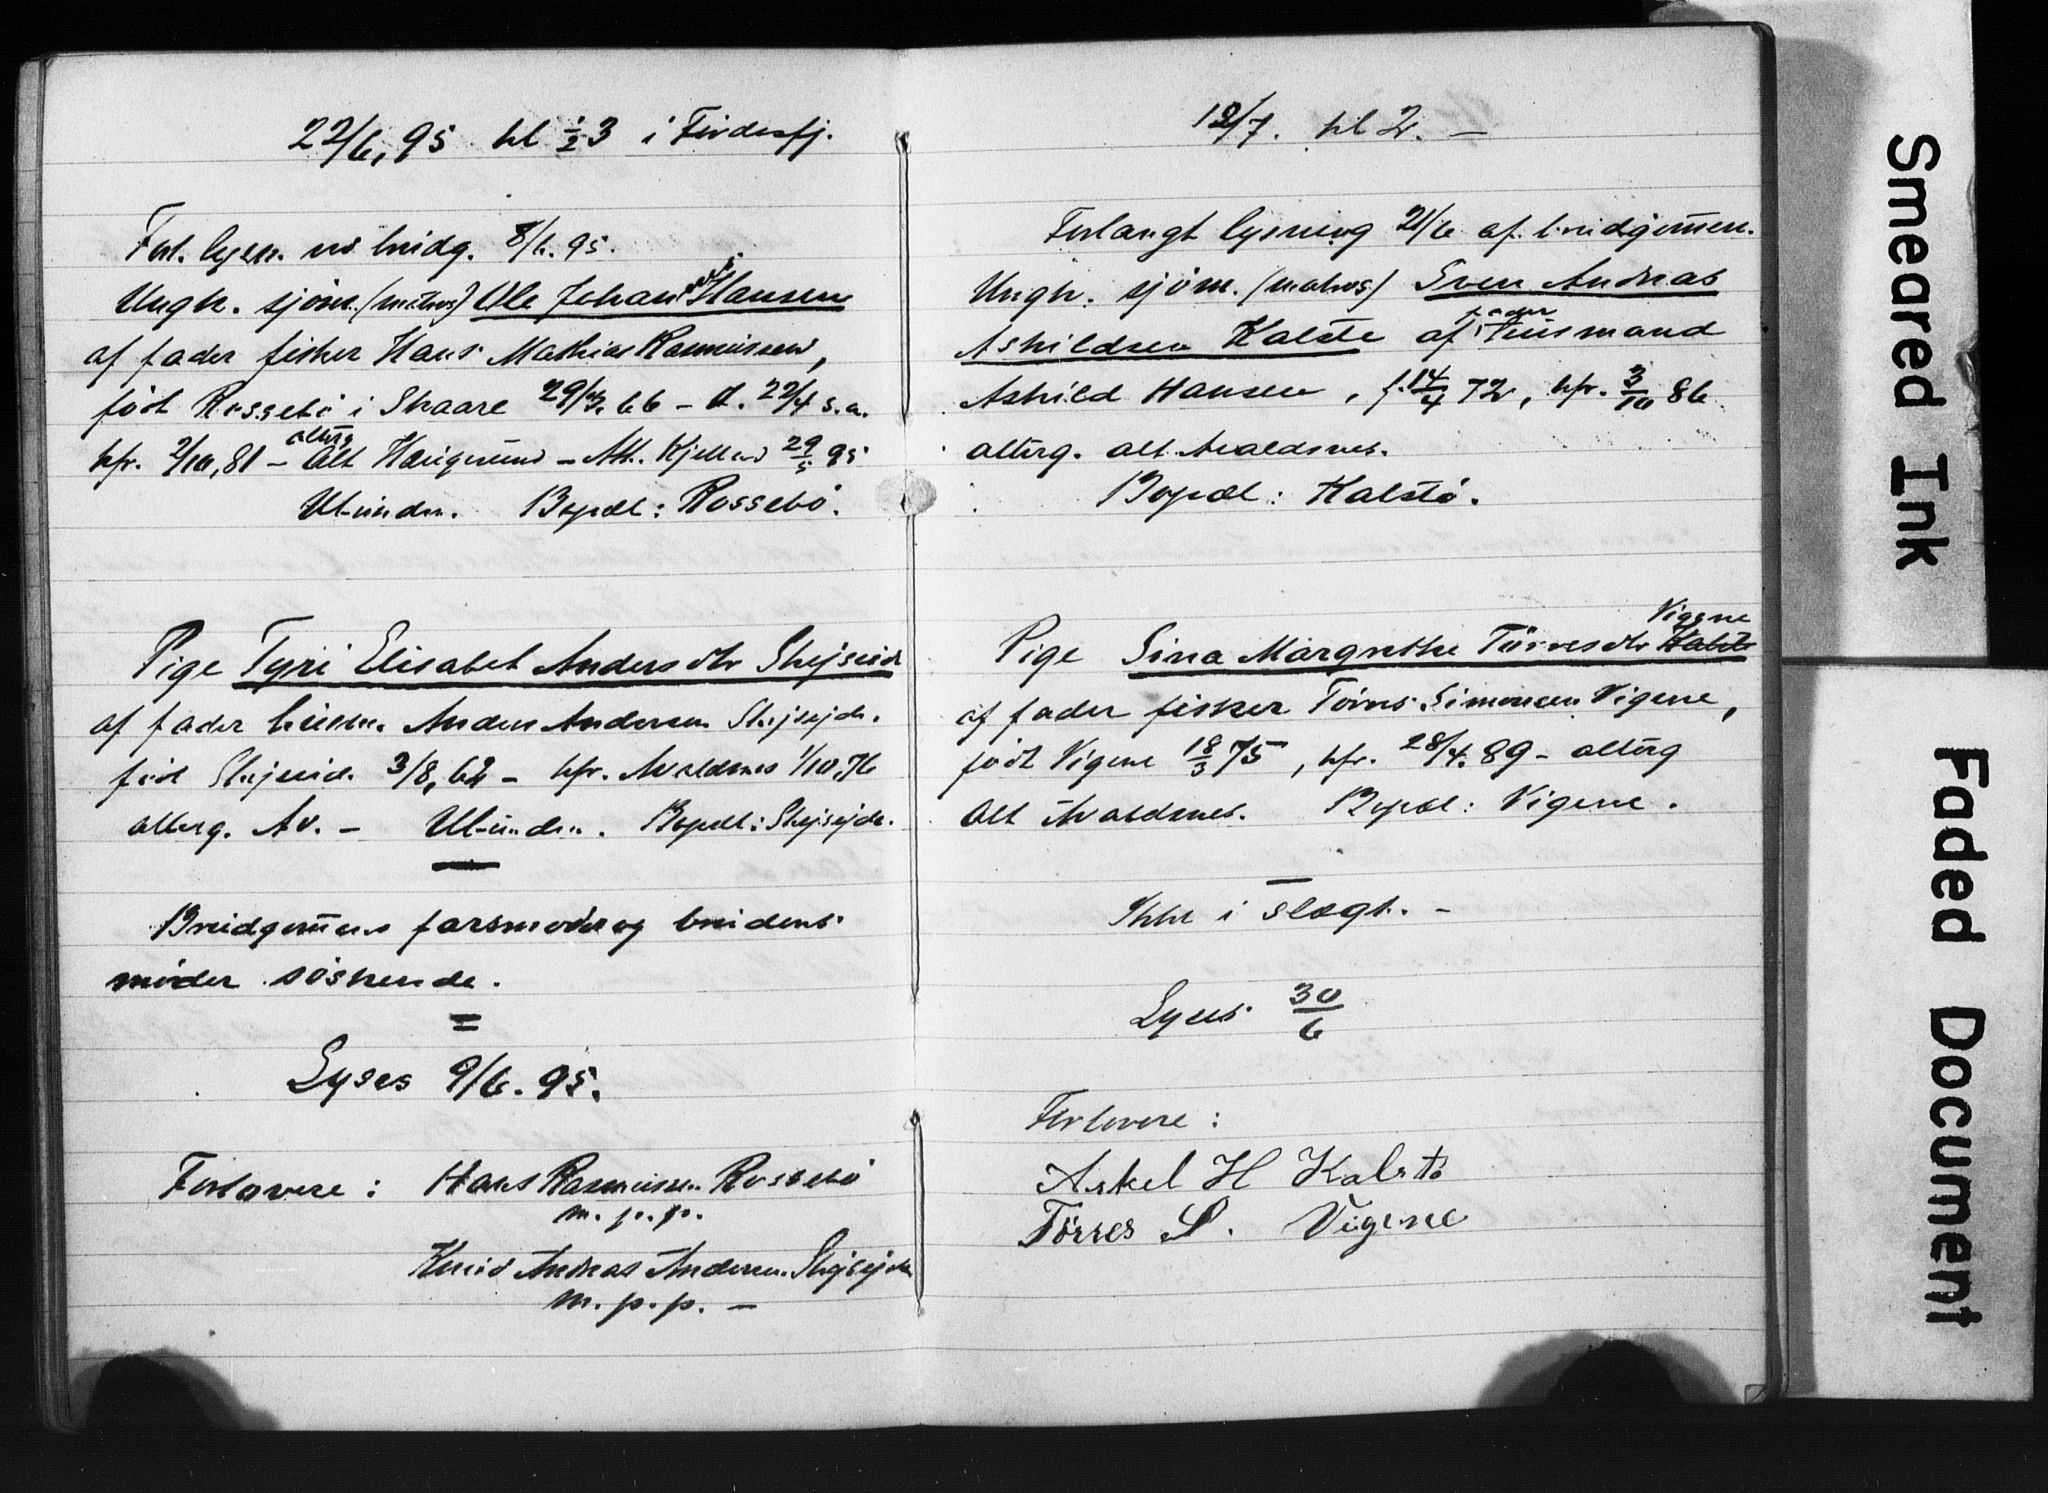 22/6, 95 kl ½3 i Førdesfj.
Forl. lysn. v brudg. 8/6. 95.
Ungk. sjøm. (matros) Ole Johan Hansen
af fader fisker Hans Mathias Rasmussen,
født Rossebø i Skaare 29/3. 66 – d. 22/4 s.a.
kfr. 2/10, 81 – altérg Alt Haugesund – Att. Kjelland 29/5 95
Ubunden. Bopæl: Rossebø.
Pige Tyri Elisabet Andersdtr Skejseid
af fader Anders Andersen Skejsejde.
født Skejseid. 3/8, 62 – kfr. Avaldsnes 1/10, 76
alterg. Av. – Ubunden. Bopæl: Skejsejde.
Brudgom̄ens farsmoder og brudens
moder søskende.
=
Lyses 9/6. 95.
Forlovere: Hans Rasmussen Rossebø
m. p. p.
Knud Andreas Andersen Skejsejde
m. p. p. –
12/7. kl 2. –
Forlangt lysning 21/6 af brudgom̄en.
Ungk. sjøm. (matros) Sven Andreas
Askildsen Kalstø af fader Husmand
Askild Hansen, f. 14/4 72, kfr. 3/10 86
alterg. alt Avaldsnes.
Bopæl: Kalstø.
Vigene
Pige Sina Margrethe Tørresdtr Kalstø
af fader fisker Tørres Simonsen Vigene,
født Vigene 18/3 75, kfr. 28/4. 89 – alterg
alt Avaldsnes. Bopæl: Vigene.
Ikke i slægt. –
Lyses 30/6
Forlovere:
Askel H Kalstø
Tørres S. Vigene
Smeared Ink
Faded Document